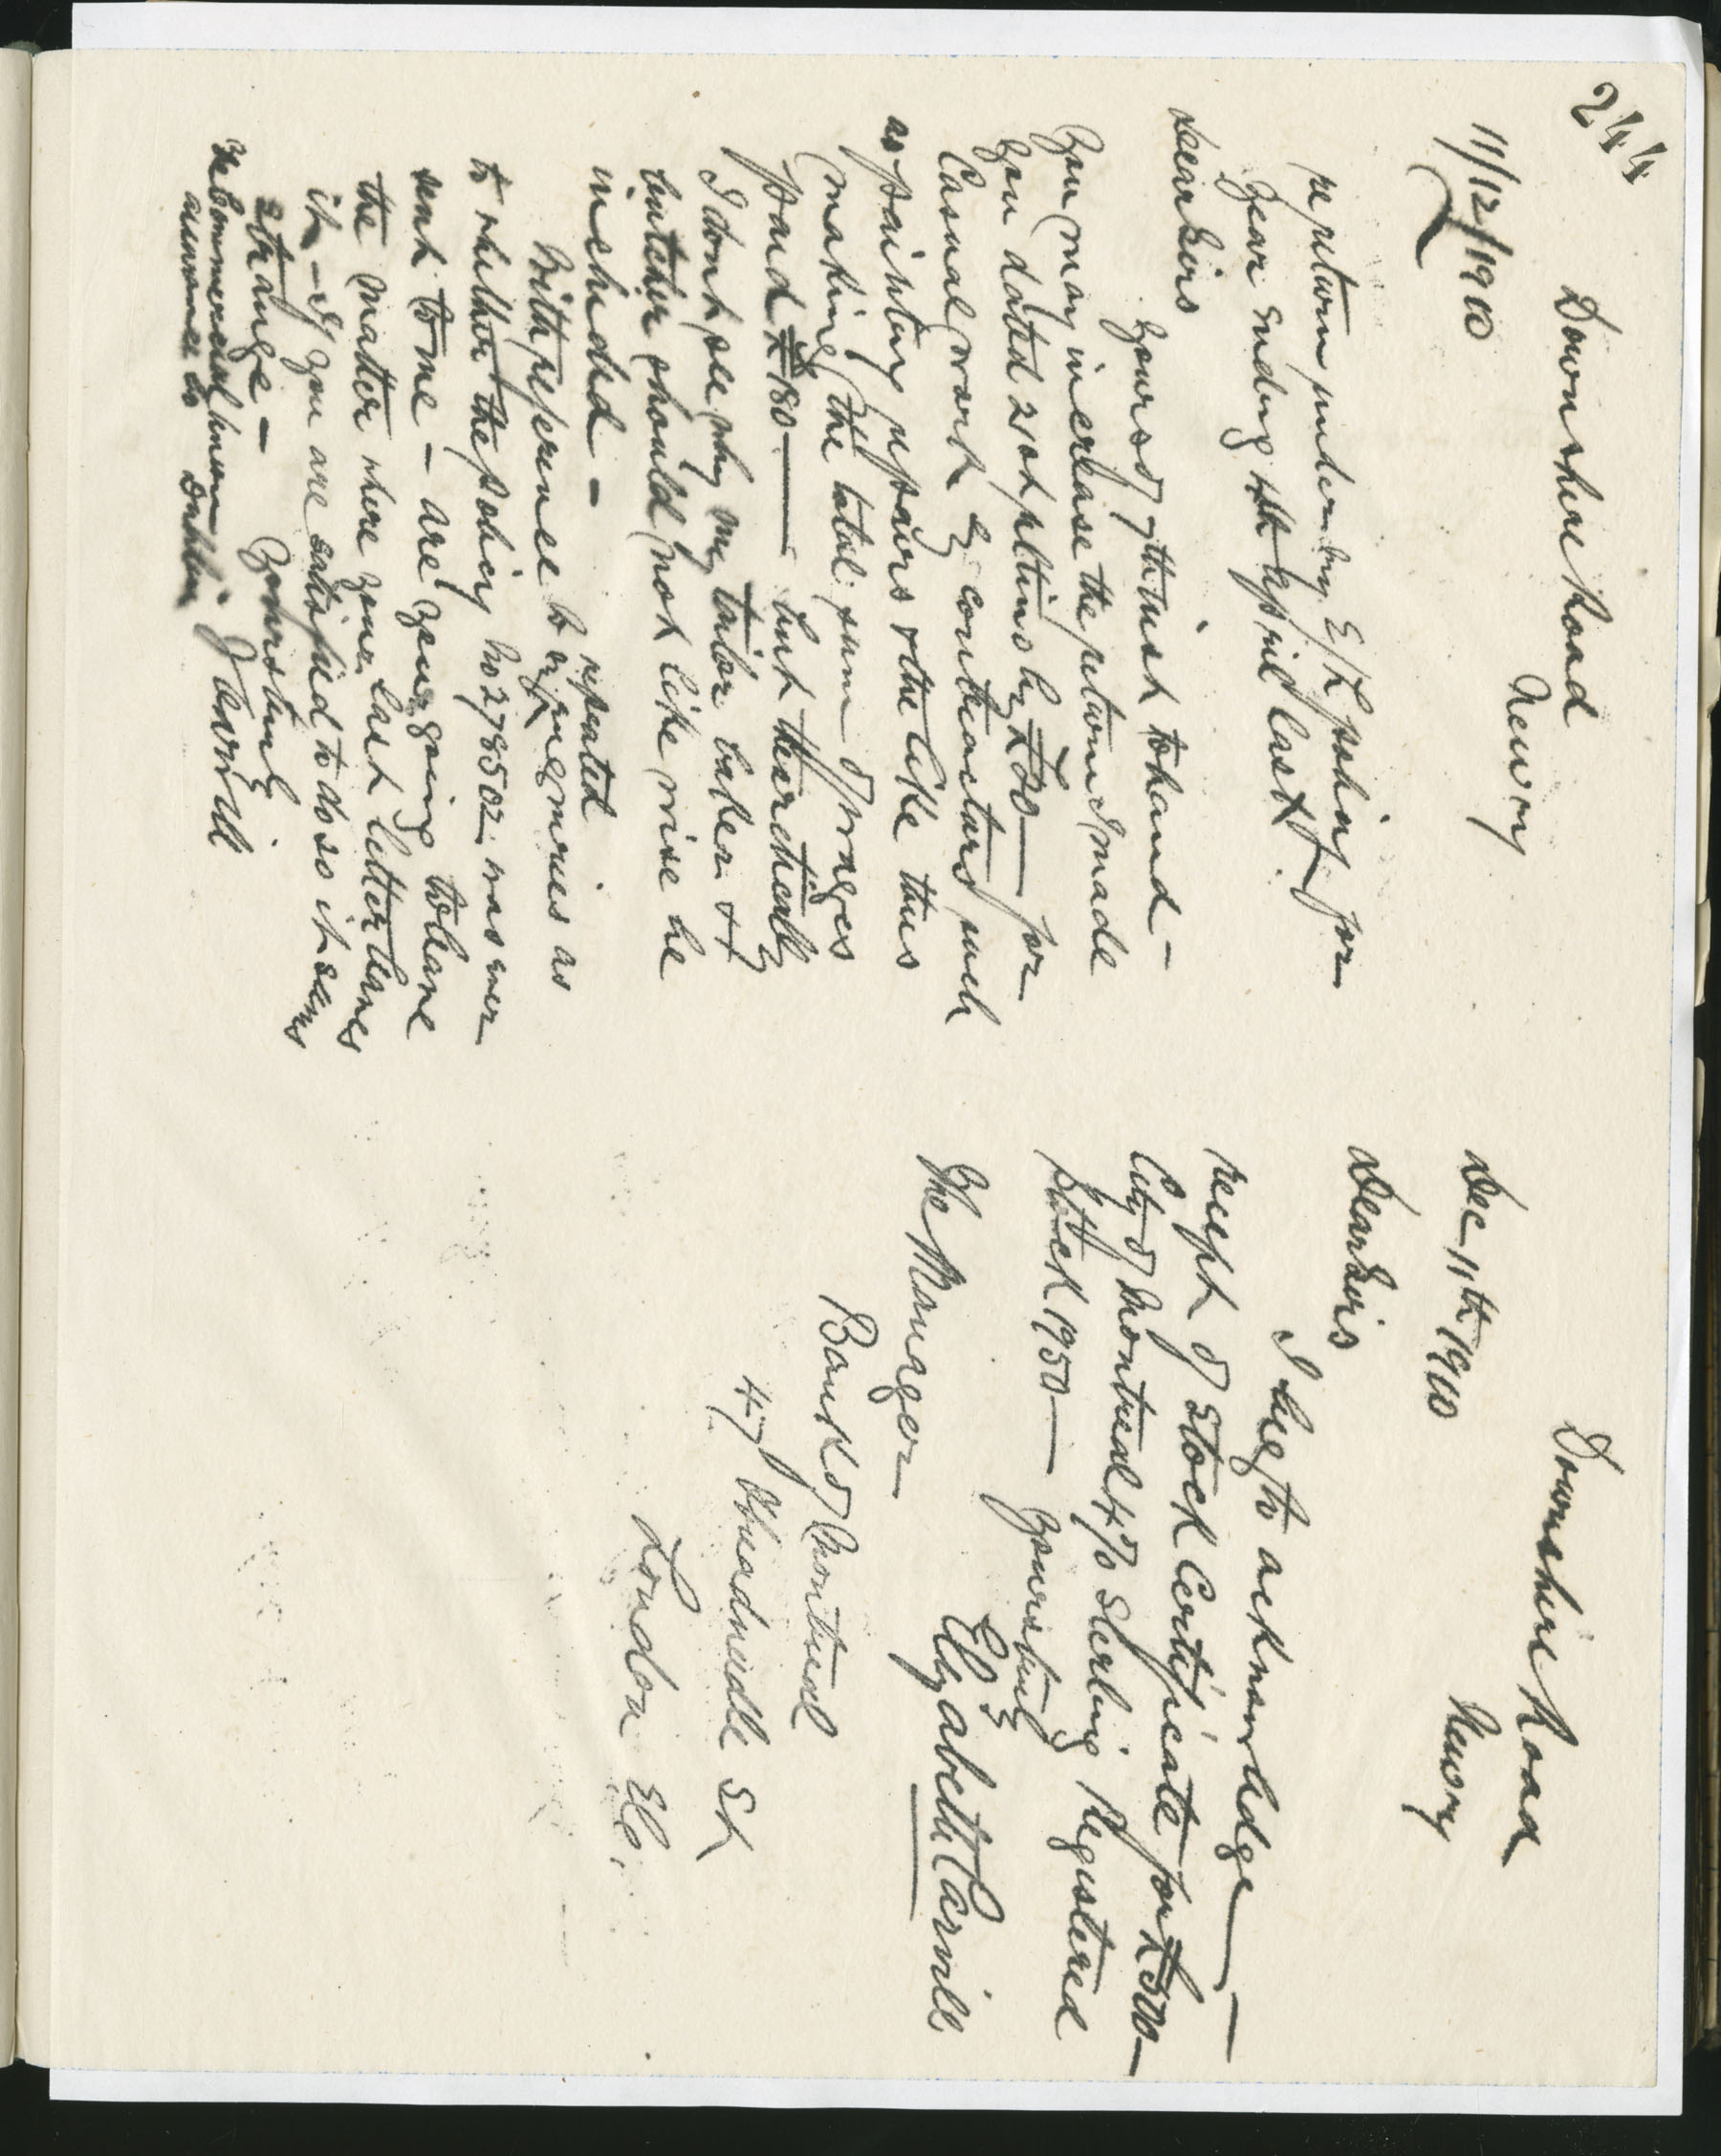 244
Downshire Road
Newry
11/12/1910
re return under my E/L policy for
year ending 4th April last
Dear Sirs
Yours of 7th inst to hand -
You may increase the return I made
you dated 21st ultimo by £20 - for
Casual work by contractors such
as painting repairs & the like thus
making the total sum of wages
paid £180 - but theoretically
I dont see why my tailor baker &
butcher should not likewise be
included -
With reference to my repeated enquiries as
to whether the policy no 278502 was ever
sent to me - are you going to leave
the matter where your last letter leaves
it - If you are satisfied to do so it seems
strange -
Yours truly
J Carvill
The Commercial Union
Assurance Co Dublin
Downshire Road
Newry
Dec 11th 1910
Dear Sirs
I beg to acknowledge
receipt of Stock Certificate for £500 -
City of Montreal 4% Sterling Registered
Stock 1950 -
Yours truly
Elizabeth Carvill
The Manager
Bank of Montreal
47 Threadneedle St
London E.C.